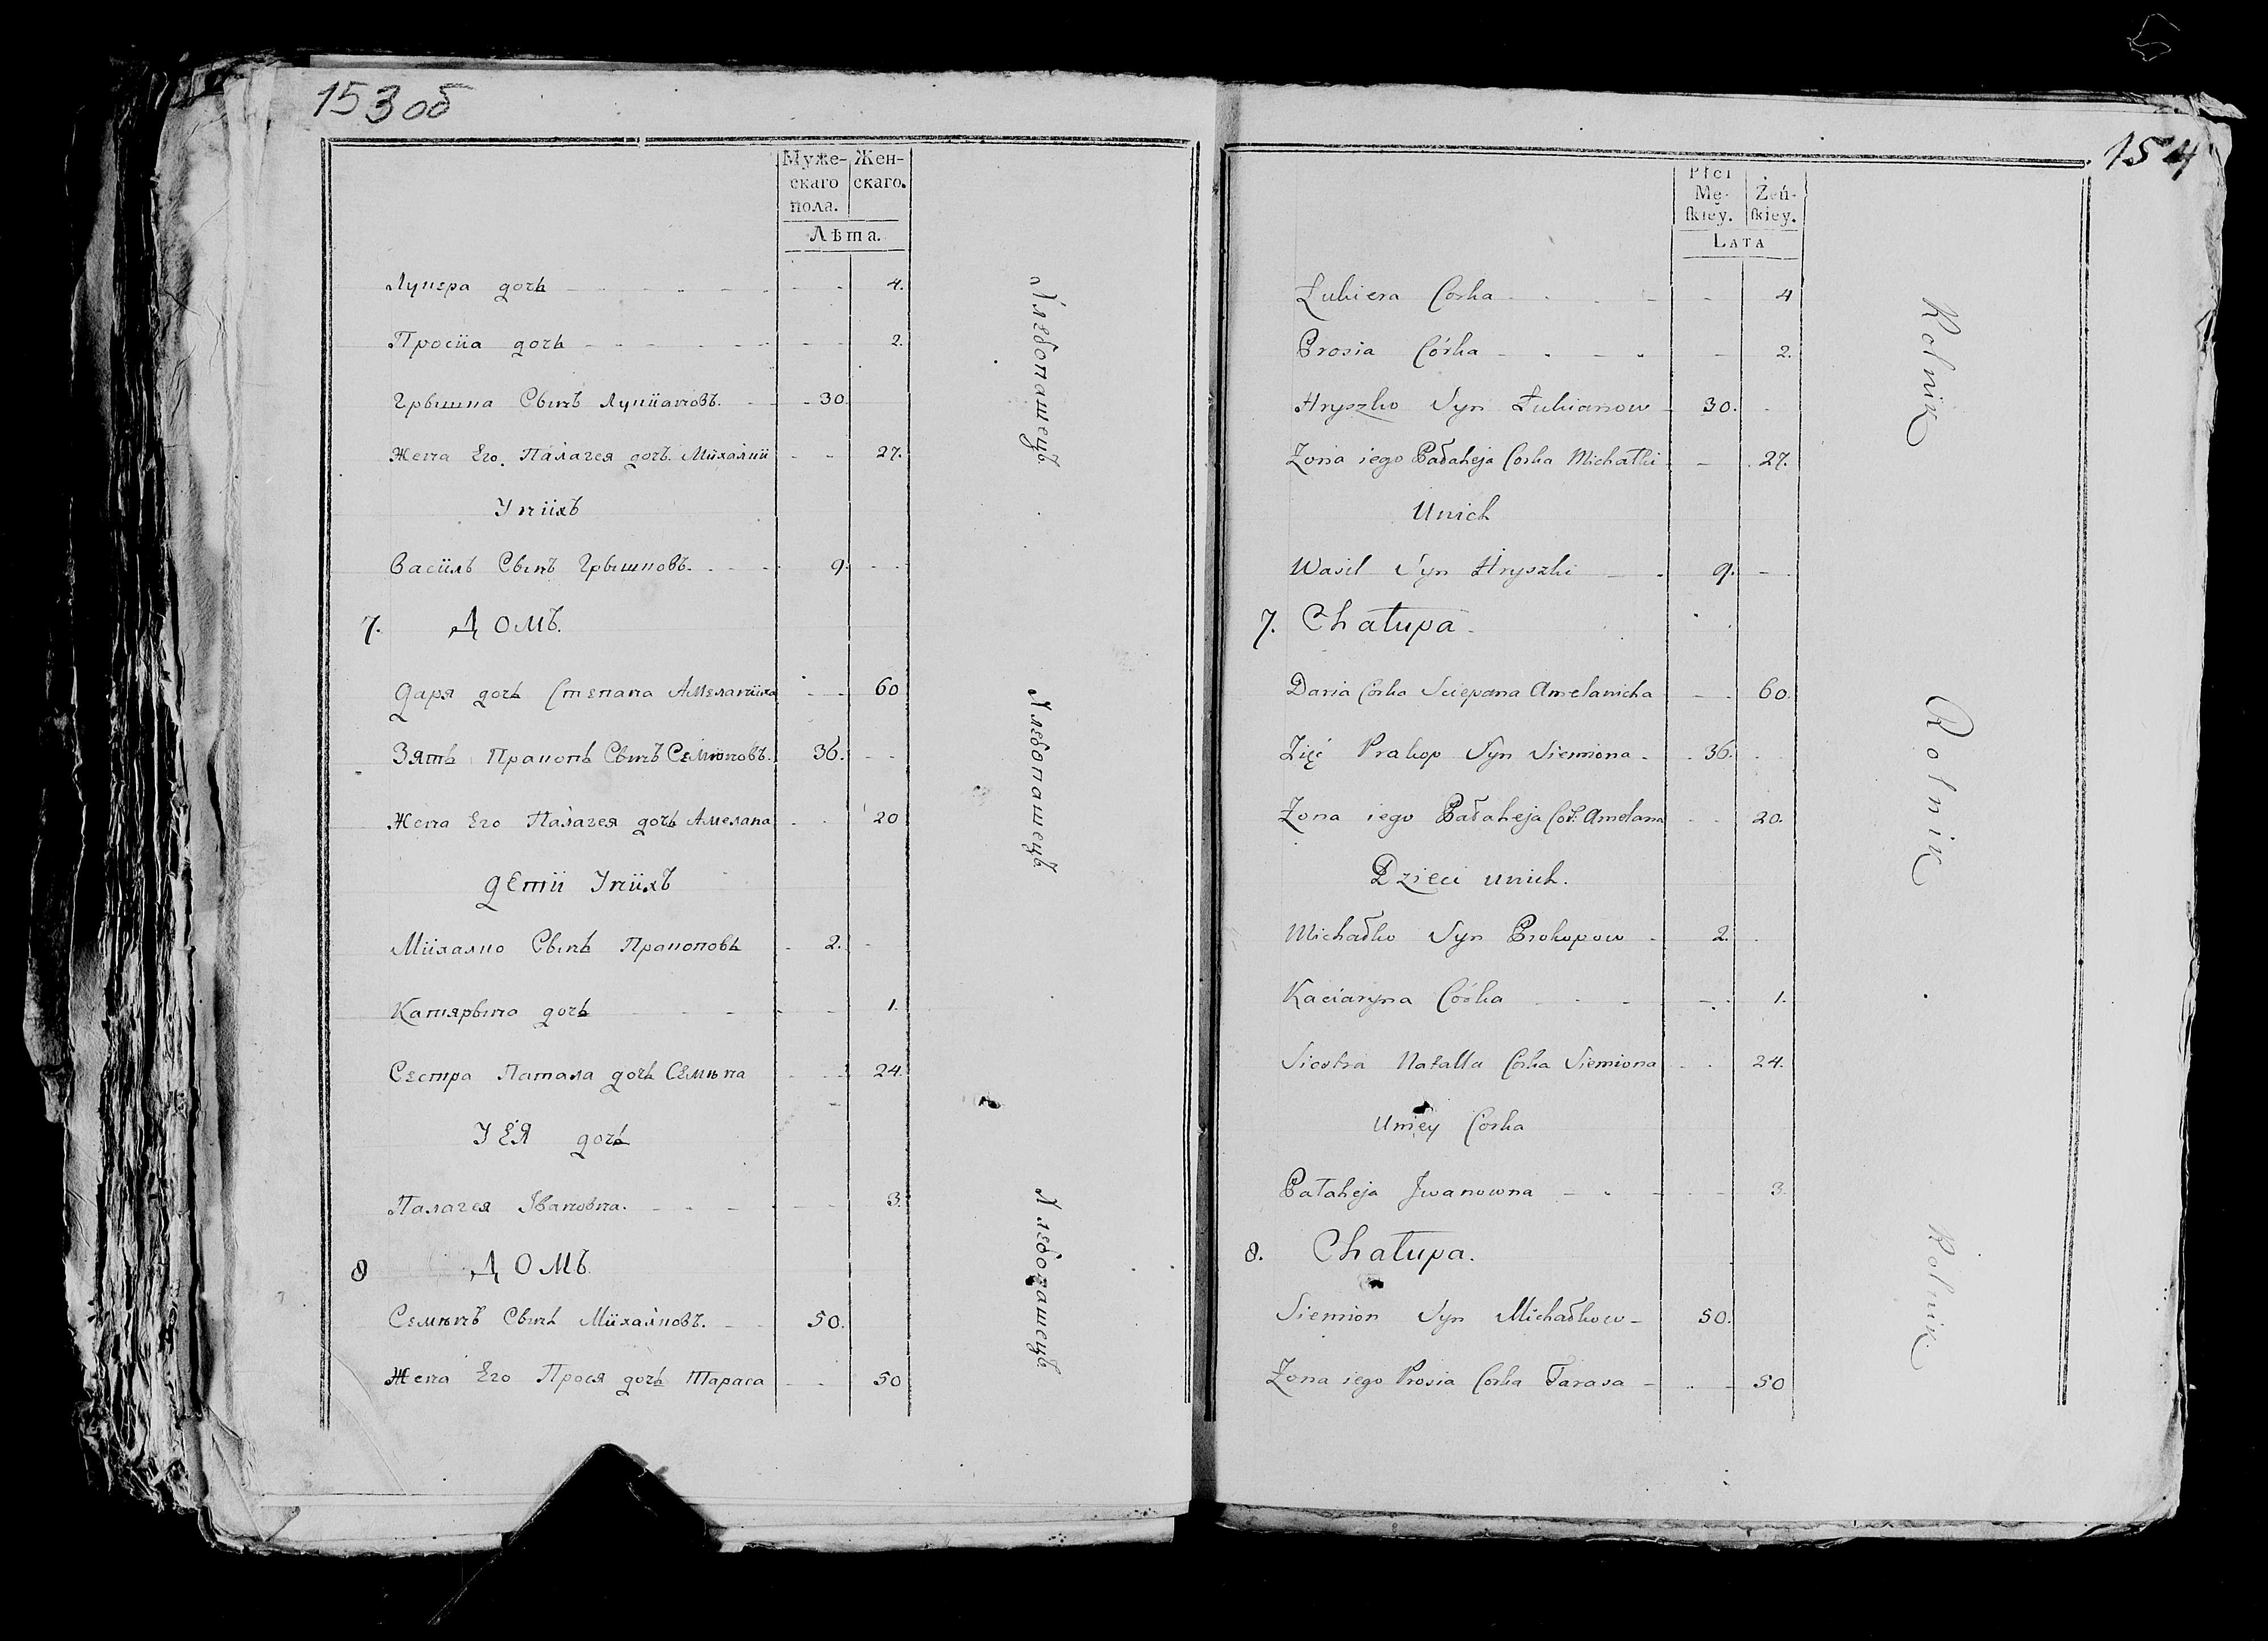 153 об
Муже-
скаго
пола.
Жен-
скаго.
Лѣта.
Лукера дочь 4.
Просiiа дочь 2.
Грышка Сынъ Лукiiановъ. 30.
Жена Его Палагея дочь Мiiхалкii 27.
У нiiхъ
Васiiль Сынъ Грышковъ. 9.
7. ДОМЪ.
Даря дочь Степана Амеланiiха 60
Зять Пракопъ Сынъ Семѣновъ. 36.
Жена Его Палагея дочь Амелана 20
Детii У нiiхъ
Мiiхалко Сынъ Пракоповъ 2.
Катярына дочь 1.
Сестра Натала дочь Семѣна 24.
У Ея дочь
Палагея Iвановна. 3.
8 ДОМЪ
Семѣнъ Сынъ Мiiхалковъ. 50.
Жена Его Прося дочь Тараса 50
Хлебопашецъ
Хлебопашецъ
Хлебопашецъ
154
Płci
Mę-
ſkiey.
Żeń-
ſkiey.
LATA
Łukiera Corka 4
Prosia Córka 2.
Hryszko Syn Łukianow 30.
Żona iego Pałaheja Corka Michałki 27.
Unich
Wasil Syn Hryszki 9.
7. Chałupa.
Daria Corka Sciepana Amelanicha 60.
Zięć Prakop Syn Siemiona 36.
Żona iego Pałaheja Cor: Amelana 20.
Dzieci unich.
Michałko Syn Prokopow 2.
Kaciaryna Córka 1.
Siostra Natalla Corka Siemiona 24.
Uniey Corka
Pałaheja Jwanowna 3.
8. Chałupa.
Siemion Syn Michałkow 50.
Żona iego Prosia Corka Tarasa 50
Rolnik
Rolnik
Rolnik